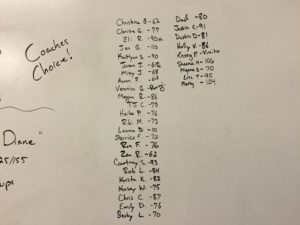 Coaches
Choice!
Diane"
25/55
ups
Christine B - 62
Christa G. - 77
Eli R.
Jen G. - 110
Kaitlyn S. - 90
Jason J. - 68
Missy J. - 68
Ann F. - 63
Veronica G.
Megan R. - 86
T.J. C. - 78
Herbie P. - 76
Ribi M. - 73
Leanne B. - 101
Sherrice F. - 72
Ron F. - 76
Zan R. - 62
Courtney S. - 93
Rob L. - 84
Krista K. - 82
Kasey W. - 75
Chris C. - 87
Emily D. - 76
Becky L. - 70
Dad - 80
Justin C. - 91
Dustin D. - 81
Holly K. - 86
Kasey P.
Shauna H - 106
Magnus B - 70
Eric T - 95
Marty - 104